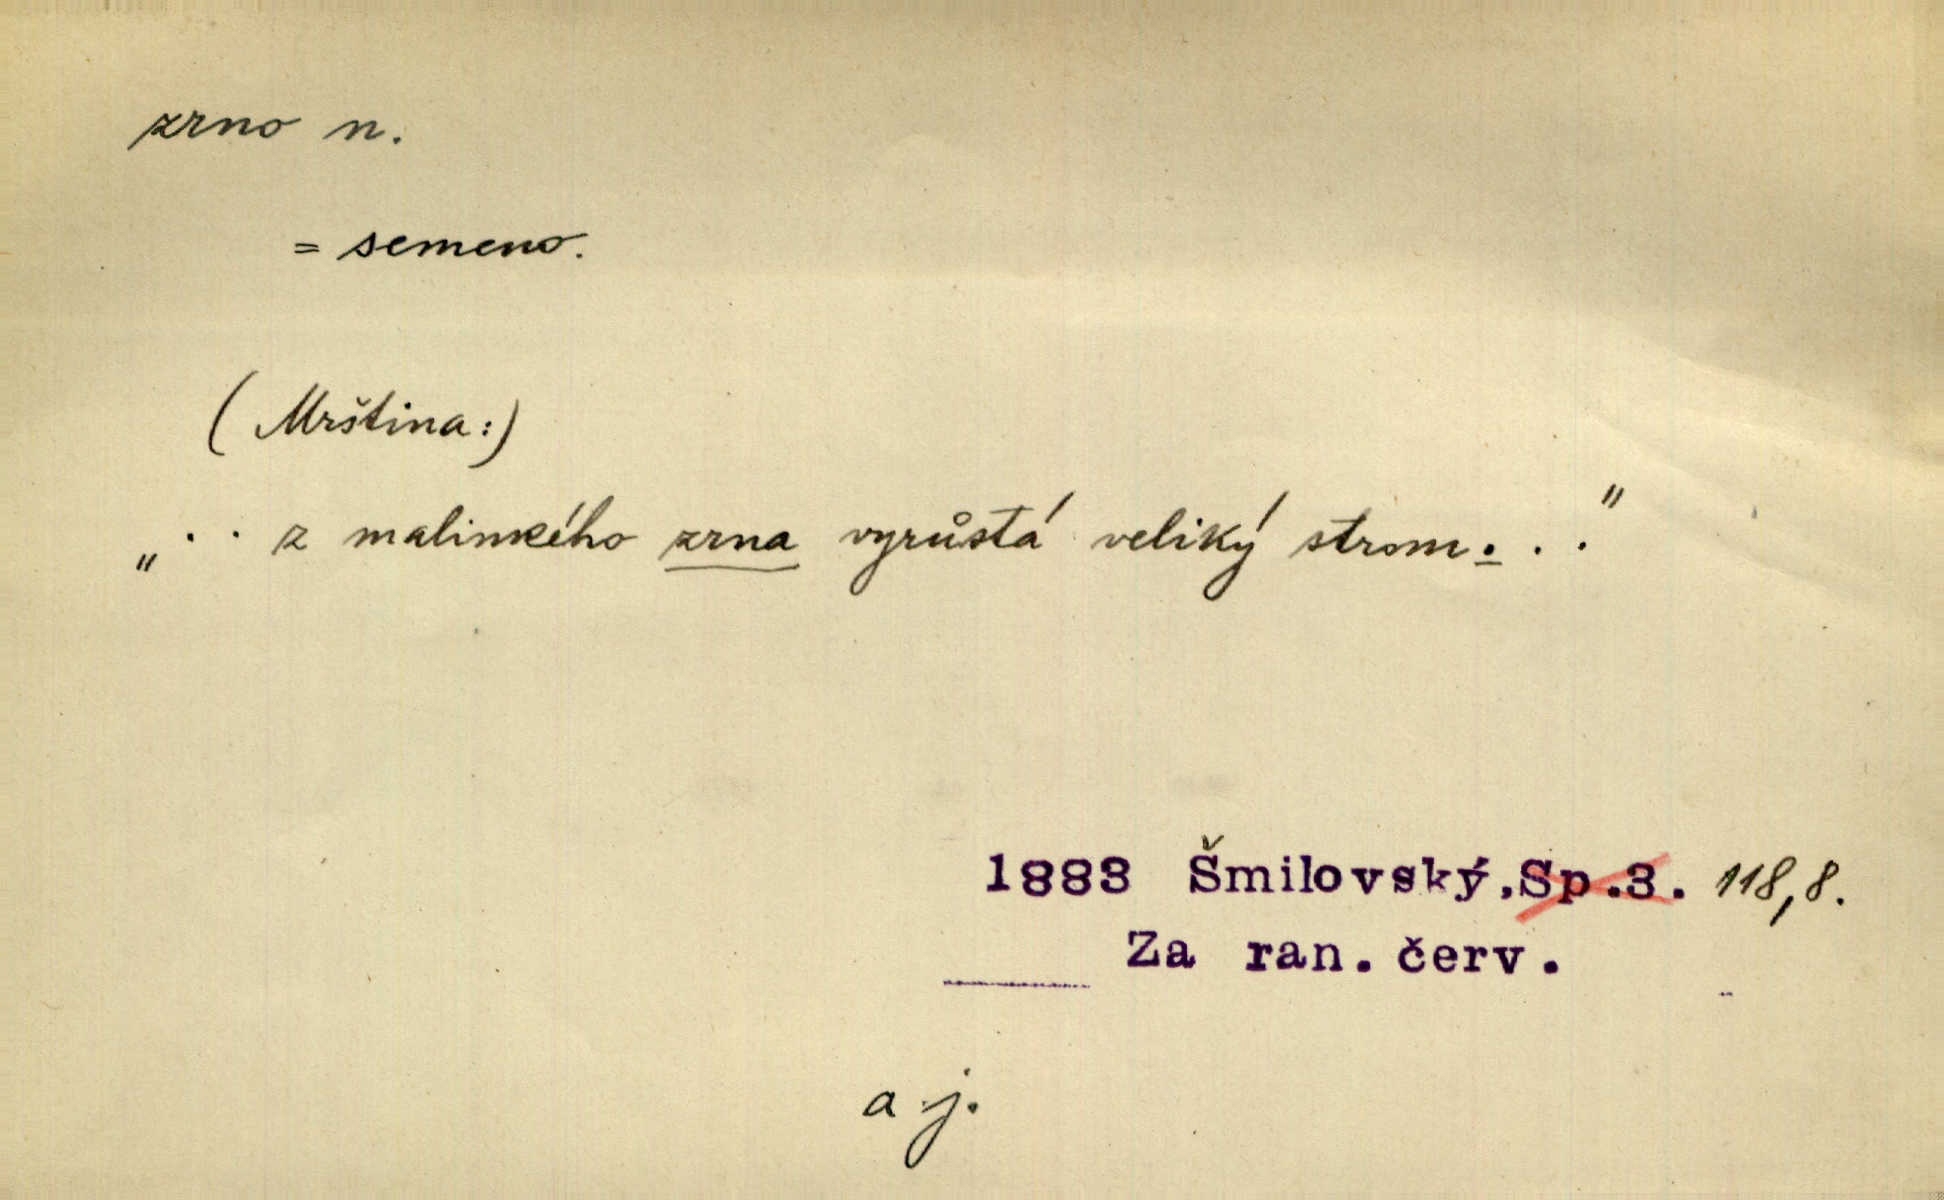 zrno n.
= semeno.
(Mrština:)
„ . . z malinkého zrna vyrůstá veliký strom. . ."
1883 Šmilovský, Sp.3. 118,8.
Za ran. červ.
a j.